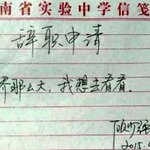 南省实验中学信笺
辞职申请
界那么大，我想去看看。
顾少强
2015.